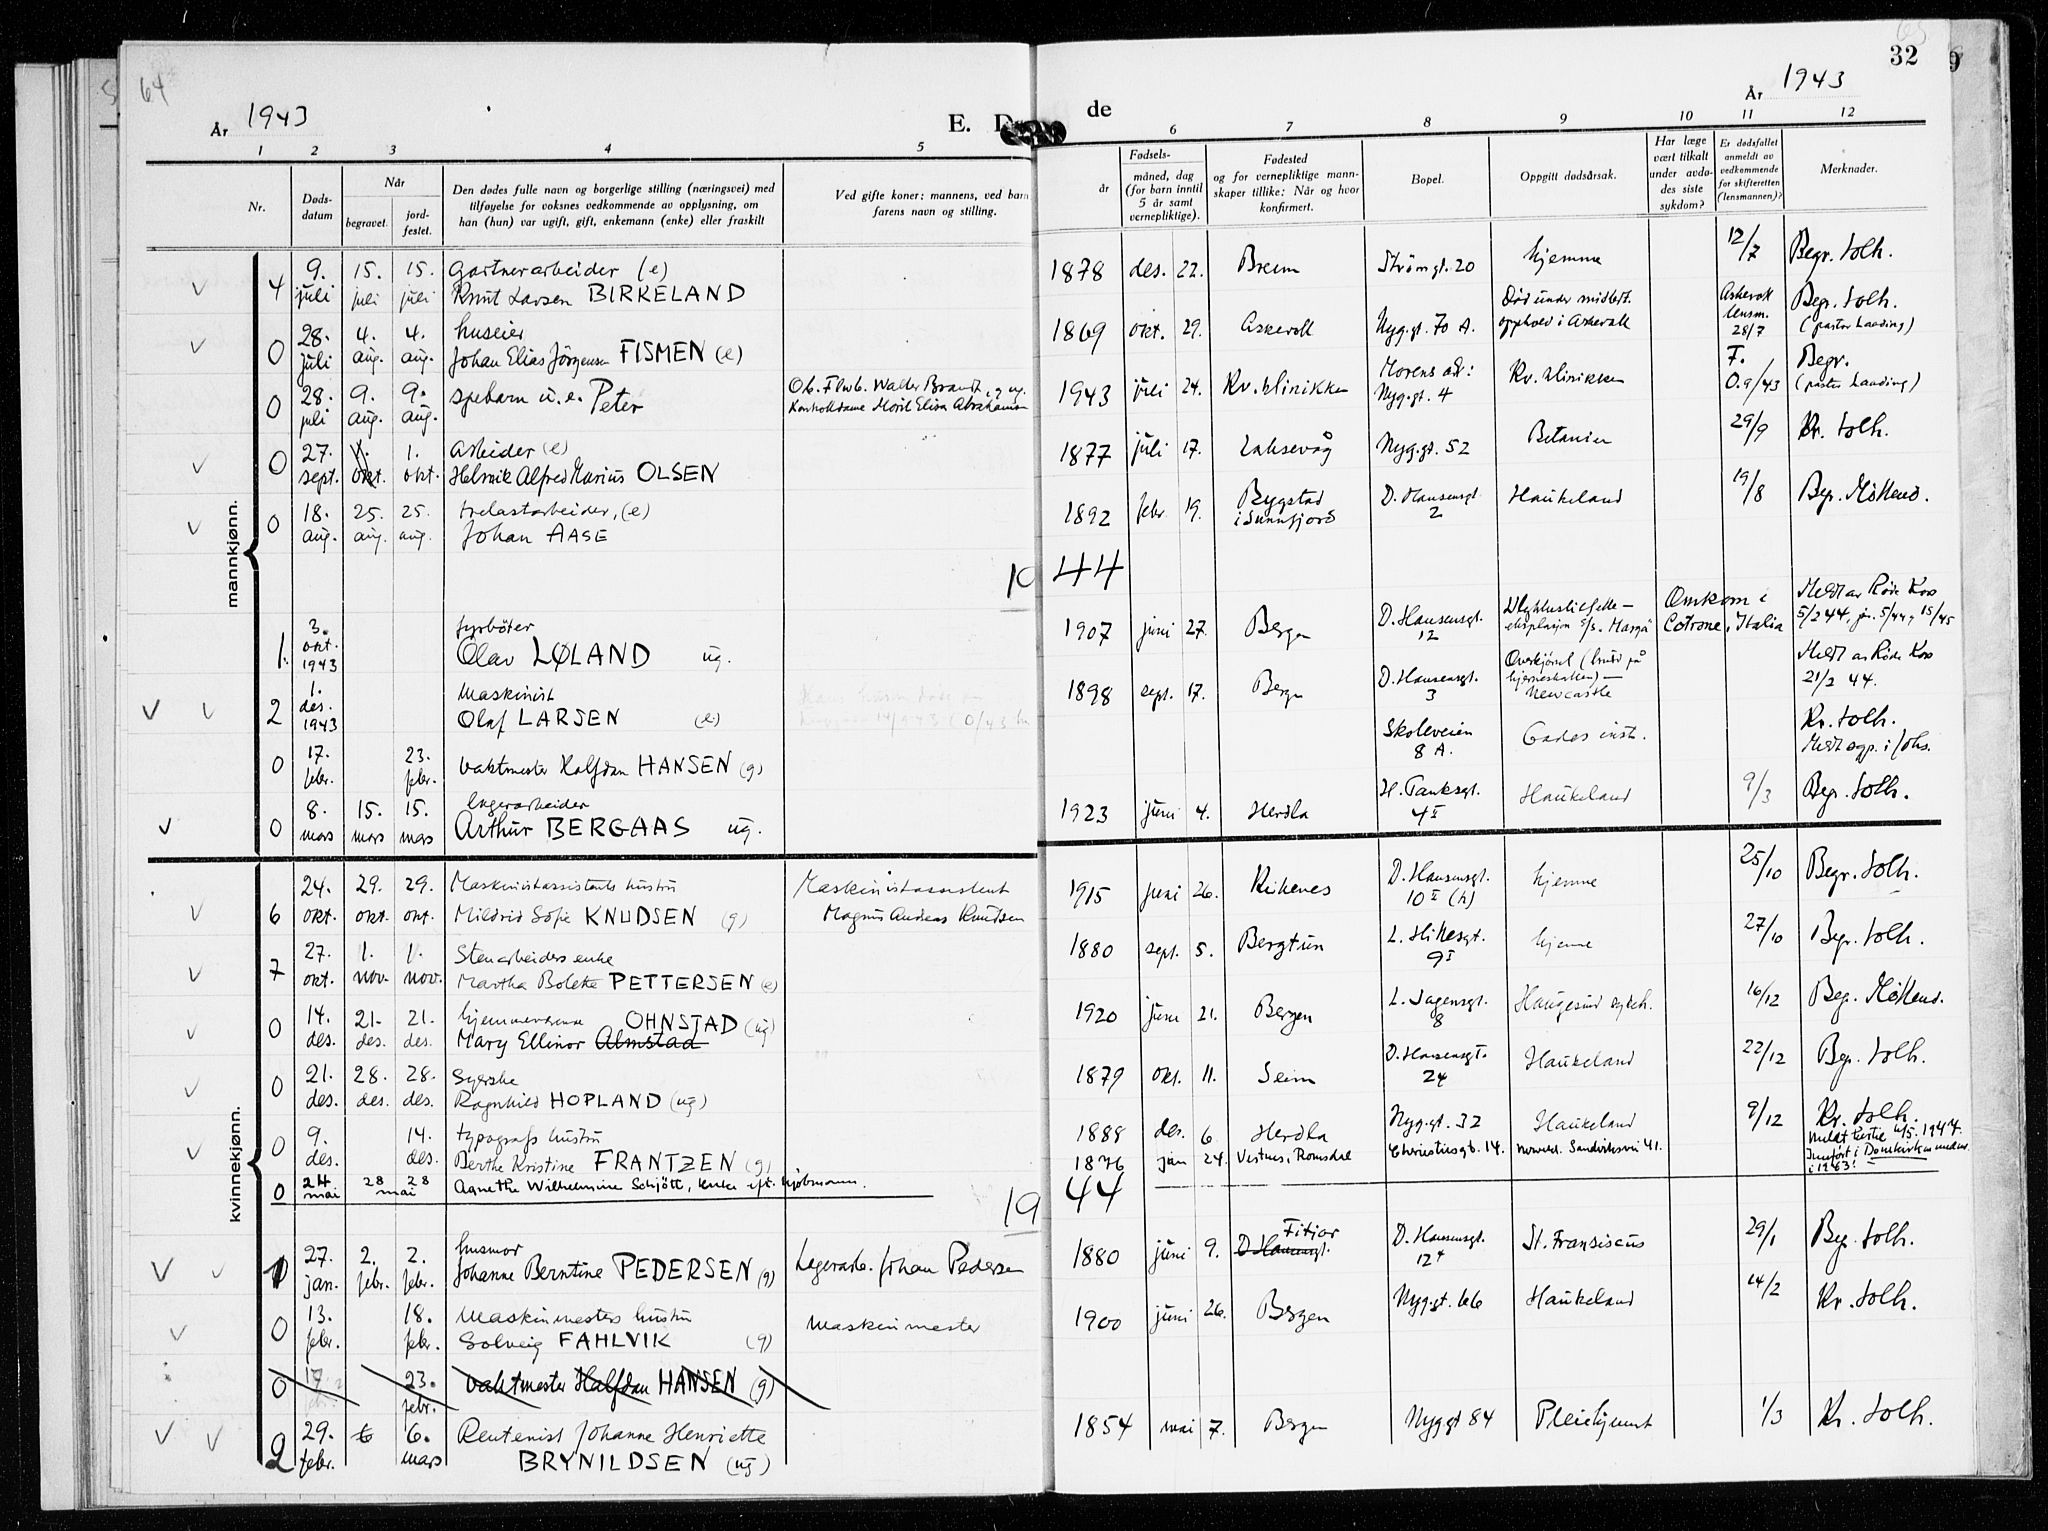 64
År 1943
E. D
de
År 1943
32
1 2 3 4 5 6 7 8 9 10 11 12
Nr.
Døds-
datum
Når
begravet.
jord-
festet.
Den dødes fulle navn og borgerlige stilling (næringsvei) med
tilføyelse for voksnes vedkommende av opplysning, om
han (hun) var ugift, gift, enkemann (enke) eller fraskilt
Ved gifte koner: mannens, ved barn
farens navn og stilling.
Fødsels-
år
måned, dag
(for barn inntil
5 år samt
vernepliktige).
Fødested
og for vernepliktige mann-
skaper tillike: Når og hvor
konfirmert.
Bopel.
Oppgitt dødsårsak.
Har læge
vært tilkalt
under avdø-
des siste
sykdom?
Er dødsfallet
anmeldt av
vedkommende
for skifteretten
(lensmannen)?
Merknader.
mannkjønn.
4 9. juli 15. juli 15. juli Gartnerarbeider (e)
Knut Larsen BIRKELAND
1878 des. 22. Breim Strømgt. 20 hjemme 12/7 Begr. Solh.
0 28. juli 4. aug. 4. aug. huseier
Johan Elias Jørgensen FISMEN (e)
1869 okt. 29. Askevoll Nyg.gt. 70 A. Død under midlert.
opphold i Askevoll
Askevoll
lensm.
28/7
Begr. Solh.
(pastor Laading)
0 28. juli 9. aug. 9. aug. spebarn u.e. Peter
Ob. Flwb. Walter Brandt, g og
Kontordame Moril Elisa Abrahamsen
1943 juli 24. Kv. klinikken Morens adr:
Nyg.gt. 4
Kv. klinikken F.
0.9/43
Begr.
(pastor Laading)
0 27. sept. 1. okt. 1. okt. Arbeider (e)
Helmik Alfred Marius OLSEN
1877 juli 17. Laksevåg Nyg.gt. 52 Betanien 29/9 Kr. Solh.
0 18. aug. 25. aug. 25. aug. trelastarbeider, (e)
Johan AASE
1892 febr. 19. Bygstad
i Sunnfjord
D. Hansensgt.
2
Haukeland 19/8 Begr. Møllend.
1944
1. 3. okt. 1943 fyrbøter
Olav LØLAND ug.
1907 juni 27. Bergen D. Hansensgt.
12
Ulykkestilfelle –
eksplosjon
Omkom i
Cotrone, Italia
Meldt av Røde Kors
5/2 44, jr. 5/44, 15/45
2 1. des. 1943 Maskinist
Olaf LARSEN (e)
1898 sept. 17. Bergen D. Hansensgt.
3
Overkjørsel (brudd på
hjerneskallen) –
Newcastle
Meldt av Røde Kors
21/2 44.
0 17. febr. 23. febr. vaktmester Halfdan HANSEN (g)
Skoleveien
8 A.
Gades inst. Kr. Solh.
0 8. mars 15. mars 15. mars lagerarbeider
Arthur BERGAAS ug.
1923 juni 4. Herdla H. Tanksgt.
4 I
Haukeland 9/3 Begr. Solh.
kvinnekjønn.
6 24. okt. 29. okt. 29. okt. Maskinistassistents hustru
Mildrid Sofie KNUDSEN (g)
Maskinistassistent
Magnus Andreas Knudsen
1915 juni 26. Kikenes D. Hansensgt.
10 I (h)
hjemme 25/10 Begr. Solh.
7 27. okt. 1. nov. 1. nov. Stenarbeiders enke
Martha Bolette PETTERSEN (e)
1880 sept. 5. Bergtun L. Hillesgt.
9 I
hjemme 27/10 Begr. Solh.
0 14. des. 21. des. 21. des. hjemmeværende OHNSTAD (ug)
Mary Ellinor Almstad
1920 juni 21. Bergen L. Sagensgt.
8
Haugesund sykeh. 16/12 Begr. Møllend.
0 21. des. 28. des. 28. des. Syerske
Ragnhild HOPLAND (ug)
1879 okt. 11. Seim D. Hansensgt.
24
Haukeland 22/12 Begr. Solh.
0 9. des. 14. des. typografs hustru
Berthe Kristine FRANTZEN (g)
1888 des. 6 Herdla Nyg.gt. 32 Haukeland 9/12 Kr. Solh.
0 24 mai 28 mai 28 Agnethe Wilhelmine Schjött, enke eft. kjøbmann.
1876 jan 24. Vestnes, Romsdal Christiesgt. 14. Sandviksvei 41.
Innført i Domkirken
i 1943!
1944
1 27. jan. 2. febr. 2. febr. husmor
Johanne Berntine PEDERSEN (g)
Lagerarb. Johan Pedersen
1880 juni 9. Fitjar
D. Hansensgt.
D. Hansensgt.
12 4
St. Fransiscus 29/1 Begr. Solh.
0 13. febr. 18. febr. Maskinmesters hustru
Solveig FAHLVIK (g)
Maskinmester
1900 juni 26. Bergen Nyg.gt. 66 Haukeland 14/2 Kr. Solh.
0 17 23. febr. vaktmester Halfdan HANSEN (g)
2 29. febr. 6 6. mars Rentenist Johanne Henriette
BRYNILDSEN (ug)
1854 mai 7. Bergen Nyggt 84 Pleiehjemmet 1/3 Kr. Solh.